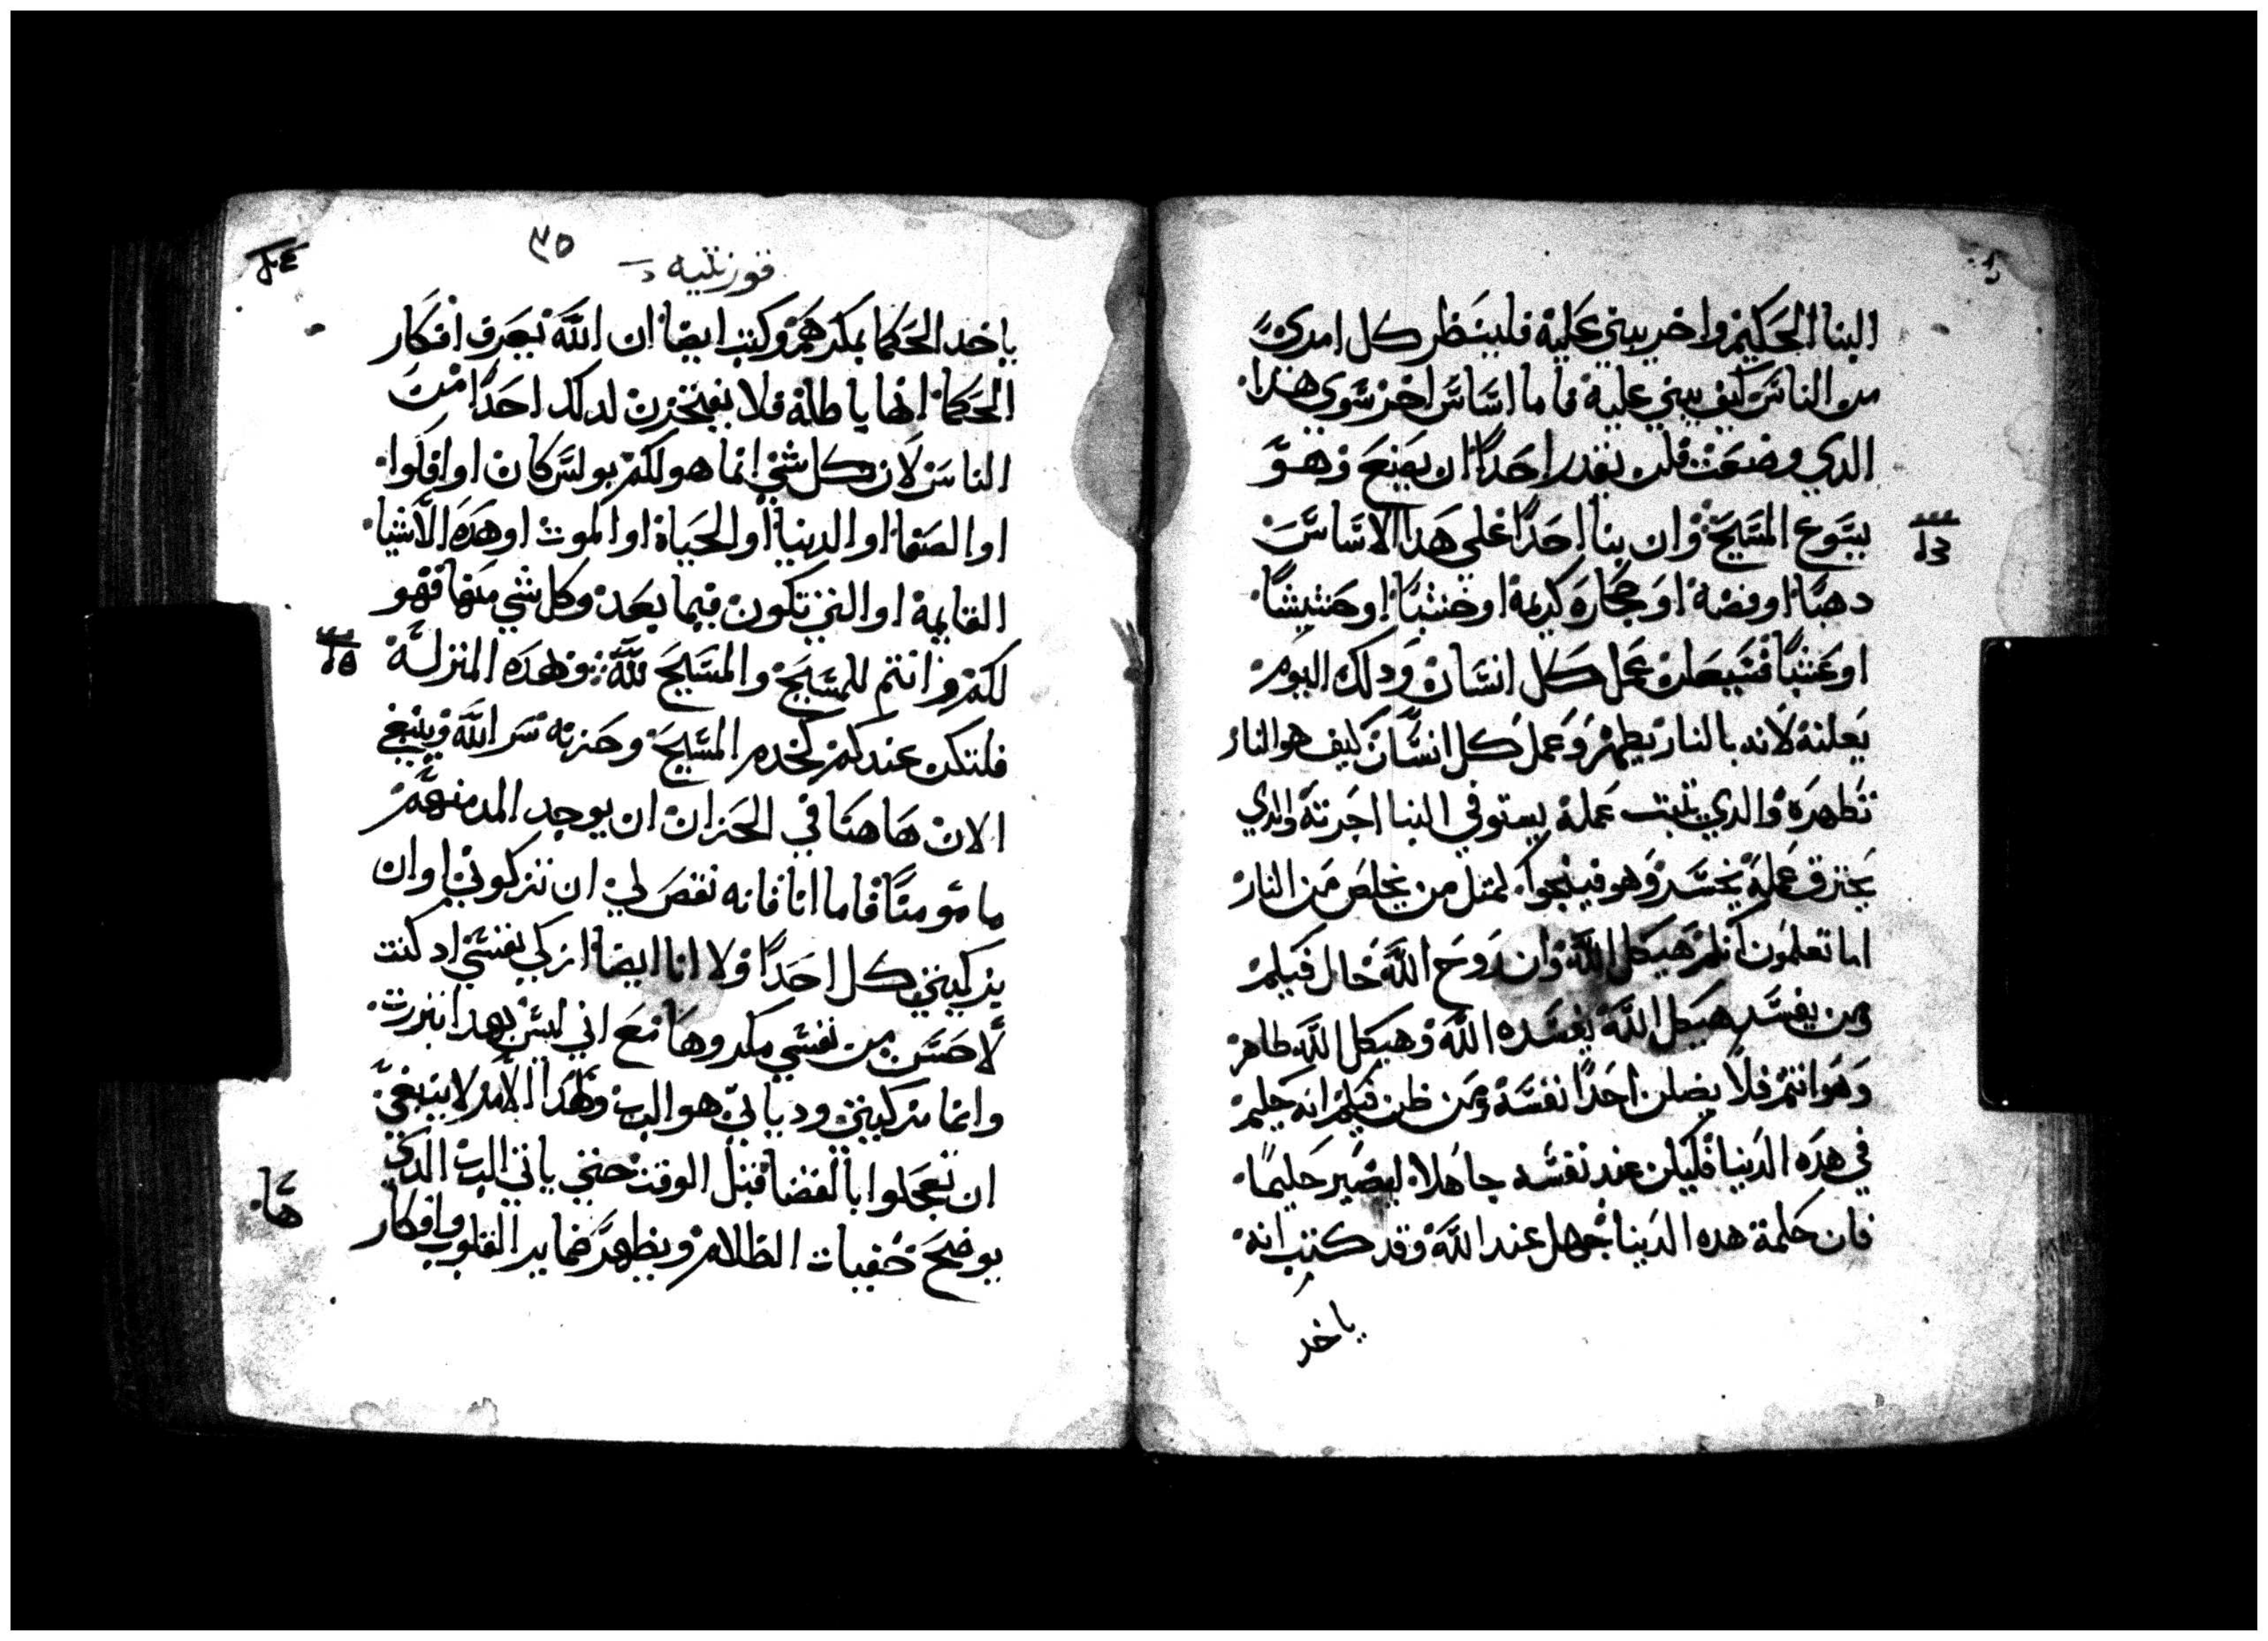 البنا الحكيم واخر يبني علية فلينظر كل امري
من الناس كيف يبني علية فاما اساس اخر سوي هذا
الدي وضعت فلن يقدر احدًا ان يضع وهو
يسوع المسيح وان بنا احدًا علي هدا الاساس
دهبًا او فضة او حجارة كريمة او خشبًا او حشيشًا
او عشبًا فسيعلن عمل كل انسان ودلك اليوم
يعلنة لانه بالنار يظهر وعمل كل انسان كيف هو النار
تظهره والدي تبت عملة يستوفي البنا اجرتة والدي
يحترق عملة يخسر وهو فينجوا كمتل من يخلص من النار
اما تعلمون انكم هيكل الله وان روح الله حال فيكم
ومن يفسد هيكل الله يفسده الله وهيكل الله طاهر
وهو انتم فلا يضلن احدًا نفسة ومن ظن فيكم انه حكيم
في هده الدنيا فليكن عند نفسه جاهلا ليصير حكيمًا
فان حكمة هده الدنيا جهل عند الله وقد كتب انه
ياخد
٣٥
قورنتيه
ياخد الحكما بمكرهم وكتب ايضا ان الله يعرف افكار
الحكما انها باطلة فلا يفتخرن لدلك احدًا من
الناس لان كل شي انما هو لكم بولس كان او افلوا
او الصفا او الدنيا او الحياة او الموت او هده الاشيا
القايمة او التي تكون فيما بعد وكل شي منها فهو
لكم وانتم للمسيح والمسيح لله وهده المنزلة
فلتكن عندكم كخدم المسيح وخزنة سر الله وينبغي
الان هاهنا في الخزان ان يوجد المر منهم
مامومنًا فاما انا فانه نقص لي ان تزكوني او ان
يزكيني كل احدًا ولا انا ايضا ازكي نفسي اد كنت
لا احسن من نفسي مكروها مع اني ليس بهدا تبررت
وانما مزكيني ودياني هو الرب ولهدا الامر لا ينبغي
ان تعجلوا بالقضا قبل الوقت حتي ياتي الرب الدي
يوضح خفيات الظلام ويظهر ضماير القلوب وافكار
هَا